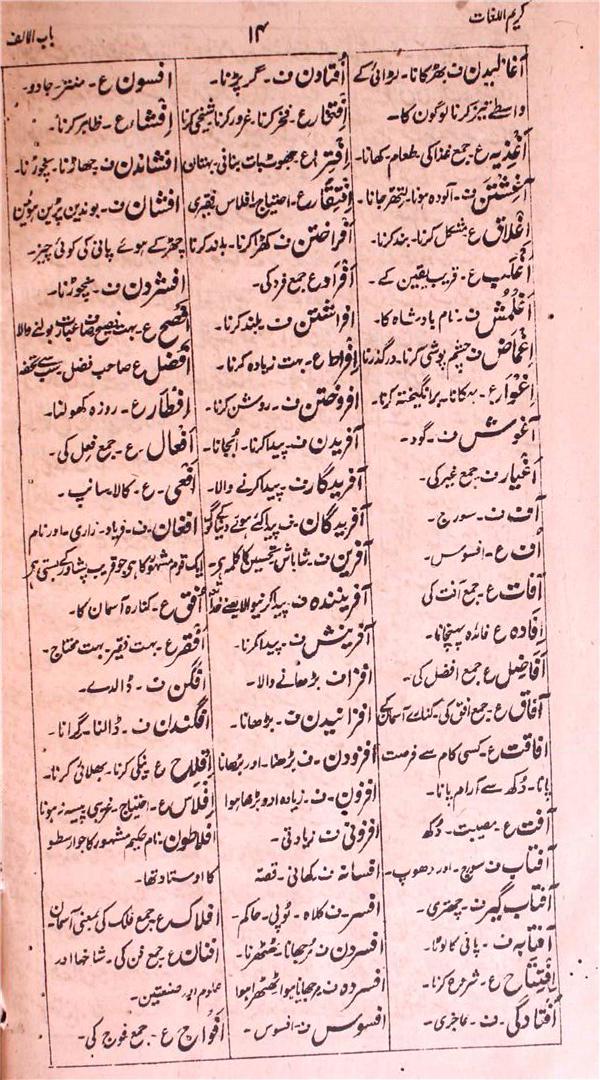 کریم اللغات
۱۴
باب الالف
آغالیدن ف بھڑکانا۔ لڑوائی کے
واسطے تیز کرنا لوگون کا۔
اَغْذِیہ ع جمع غذا کی۔ طعام۔ کھانا۔
آغِشْتَن ف۔ آلودہ ہونا۔ لتھڑ جانا۔
اِغلاق ع مشکل کرنا۔ بند کرنا۔
اَغلب ع۔ قریب یقین کے۔
اَغْلَمُش ف۔ نام بادشاہ کا۔
اِغماض ف چشم پوشی کرنا۔ درگذرنا
اِغوار ع۔ بہکانا۔ برانگیختہ کرنا۔
آغوش ف۔ گود۔
اَغیار ف جمع غیر کی۔
آف ف۔ سورج۔
اُف ع۔ افسوس۔
آفات ع جمع آفت کی
اِفادہ ع فائدہ پہنچانا۔
اَفاضِل ع جمع افضل کی۔
آفاق ع۔ جمع افق کی۔ کنارے آسمان کے
افاقت ع۔ کسی کام سے فرصت
پانا۔ دُکھ سے آرام پانا۔
آفت ع۔ مصیبت۔ دُکھ
آفتاب ف سورج۔ اور دھوپ۔
آفتاب گیر ف۔ چھتری۔
آفتابہ ف۔ پانی کا لوٹا۔
اِفتِتاح ع۔ شروع کرنا۔
اُفتادگی۔ ف۔ عاجزی۔
اُفتادن ف۔ گر پڑنا۔
اِفتخار ع۔ فخر کرنا۔ غرور کرنا شیخی کرنا
اِفترا ع۔ جھوٹ بات بنانی۔ بہتان
اِفتِقار ع۔ احتیاج۔ افلاس۔ فقیری
اَفراختن ف کھڑا کرنا۔ بلند کرنا
اَفراد ع جمع فرد کی۔
افراشتن ف بلند کرنا۔
اِفراط ع۔ بہت زیادہ کرنا۔
افروختن ف۔ روشن کرنا۔
آفریدن ف۔ پیدا کرنا۔ اُبجانا۔
آفریدگار ف۔ پیدا کرنے والا۔
آفریدگان۔ ف۔ پیدا کئے ہوئے دنیا کے لوگ
آفرین ف۔ شاباش تحسین کا کلمہ ہی۔
آفرینندہ ف۔ پیدا کرنیوالا یعنے خدا
آفرینش ف۔ پیدا کرنا۔
افزا ف بڑھانے والا۔
افزانیدن ف۔ بڑھانا۔
افزودن۔ ف بڑھنا۔ اور بڑھانا
افزون۔ ف۔ زیادہ اور بڑھا ہوا
افزونی ف زیادتی۔
افسانہ ف کہانی۔ قصہ
افسر۔ ف کلاہ۔ ٹوپی۔ حاکم۔
افسردن ف۔ مرجھانا۔ ٹھٹھرنا۔
افسردہ ف۔ مرجھایا ہوا ٹھٹھرا ہوا
افسوس ف۔ افسوس۔
افسون ع۔ منتر۔ جادو۔
اِفشا ع۔ ظاہر کرنا۔
افشاندن ف جھاڑنا۔ نچوڑنا۔
افشان ف۔ بوندین پڑین ہوئین
چھڑکے ہوئے پانی کی کوئی چیز۔
افشردن ف۔ نچوڑنا۔
اَفضح ع۔ بہت فصیح صاف عبارت بولنے والا
اَفضل ع صاحب فضل۔
اِفطار ع۔ روزہ کھولنا۔
اَفعال۔ ع۔ جمع فعل کی۔
اَفعی۔ ع۔ کالا سانپ۔
افغان۔ ف۔ فریاد۔ زاری۔ اور نام
ایک قوم مشہور کا ہی جو قریب پشاور کے بستی ہی
اُفق ع۔ کنارہ آسمان کا۔
اَفقر ع۔ بہت فقیر۔ بہت محتاج۔
افگن ف۔ ڈالدے۔
افگندن ف۔ ڈالنا۔ گرانا۔
اِفلاح ع نیکی کرنا۔ بھلائی کرنا۔
اِفلاس ع۔ احتیاج۔ غریبی۔ پیسہ نہونا
افلاطون۔ نام حکیم مشہور کا جو ارسطو
کا اوستاد تھا۔
افلاک ع۔ جمع فلک کی بمعنی آسمان۔
افنان ع۔ جمع فن کی۔ شاخہا اور
علوم اور صنعتین۔
اَفواج ع۔ جمع فوج کی۔